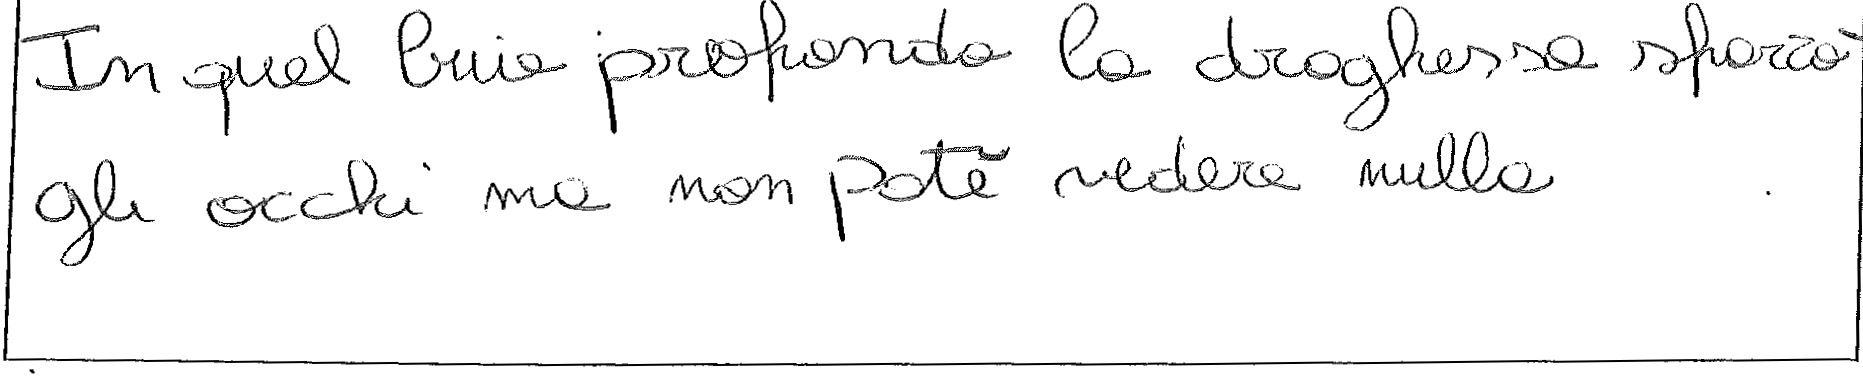 In quel buio profondo la draghessa sparò
gli occhi ma non potè vedere nulla